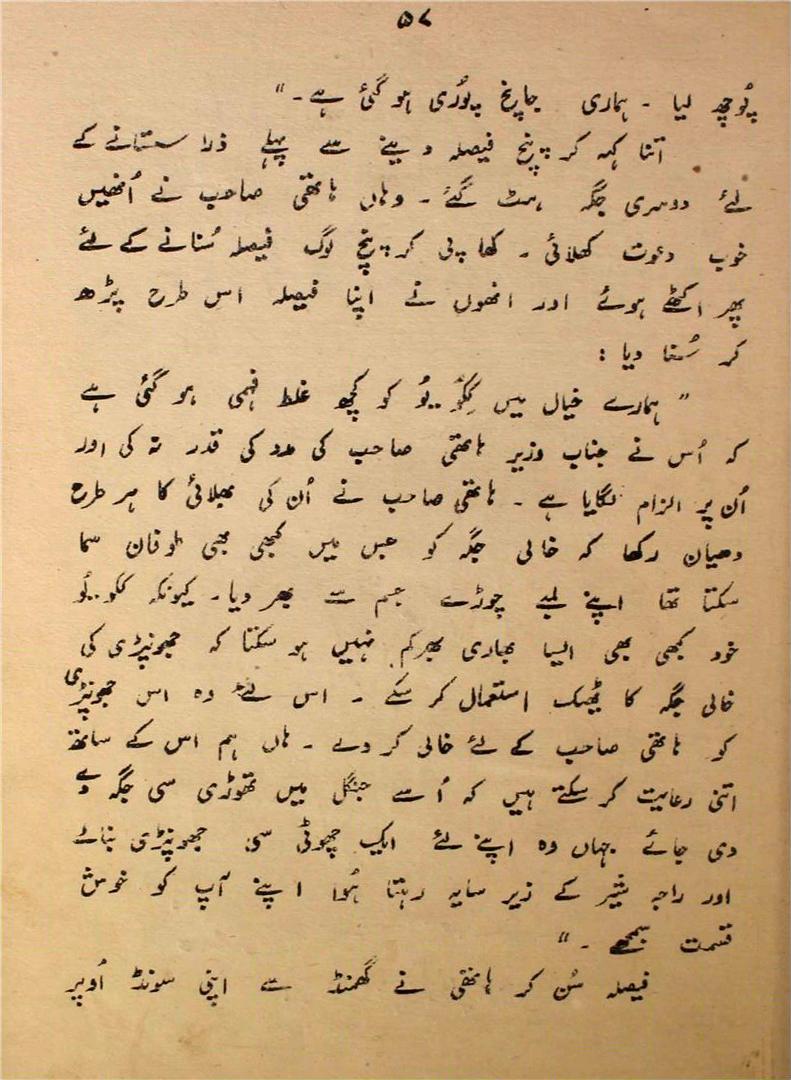 ۵۷
پُوچھ لیا ۔ ہماری جانچ پوُری ہو گئی ہے ۔"
اتنا کہہ کر پنچ فیصلہ دینے سے پہلے ذرا سستانے کے
لئے دوسری جگہ ہٹ گئے ۔ وہاں ہاتھی صاحب نے اُنھیں
خوب دعوت کھلائی ۔ کھا پی کر پنچ لوگ فیصلہ سُنانے کے لئے
پھر اکٹھے ہوئے اور انھوں نے اپنا فیصلہ اس طرح پڑھ
کر سُنا دیا :
" ہمارے خیال میں ککوُیوُ کو کچھ غلط فہمی ہو گئی ہے
کہ اُس نے جناب وزیر ہاتھی صاحب کی مدد کی قدر نہ کی اور
اُن پر الزام لگایا ہے ۔ ہاتھی صاحب نے اُن کی بھلائی کا ہر طرح
دھیان رکھا کہ خالی جگہ کو جس میں کبھی بھی طوفان سما
سکتا تھا اپنے لمبے چوڑے جسم سے بھر دیا ۔ کیونکہ ککویوُ
خود کبھی بھی ایسا بھاری بھرکم نہیں ہو سکتا کہ جھونپڑی کی
خالی جگہ کا ٹھیک استعمال کر سکے ۔ اس لئے وہ اس جھونپڑی
کو ہاتھی صاحب کے لئے خالی کر دے ۔ ہاں ہم اس کے ساتھ
اتنی رعایت کر سکتے ہیں کہ اُسے جنگل میں تھوڑی سی جگہ دے
دی جائے جہاں وہ اپنے لئے ایک چھوٹی سی جھونپڑی بنالے
اور راجہ شیر کے زیر سایہ رہتا ہُوا اپنے آپ کو خوش
قسمت سمجھے ۔"
فیصلہ سُن کر ہاتھی نے گھمنڈ سے اپنی سونڈ اُوپر